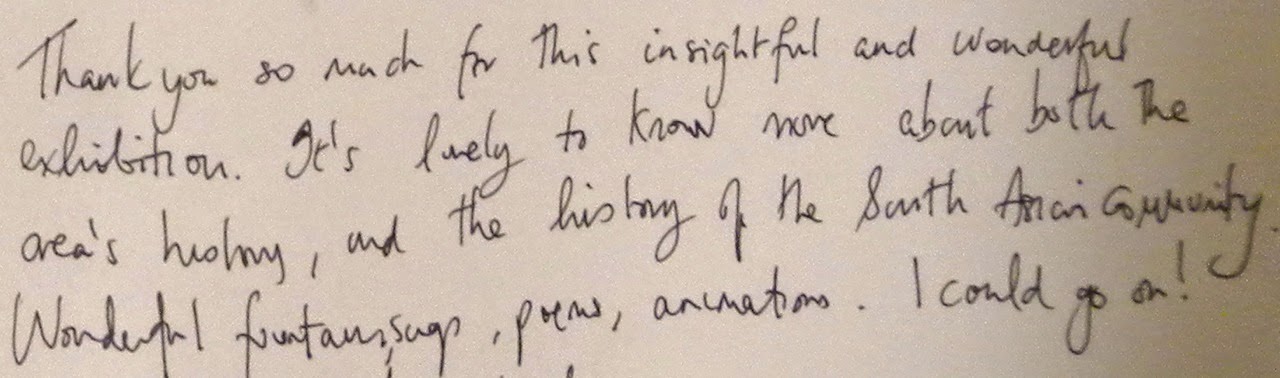 Thank you so much for this insightful and wonderful
exhibition. It's lovely to know more about both the
area's history, and the history of the South Asian Community.
Wonderful fountains, songs, poems, animations. I could go on!